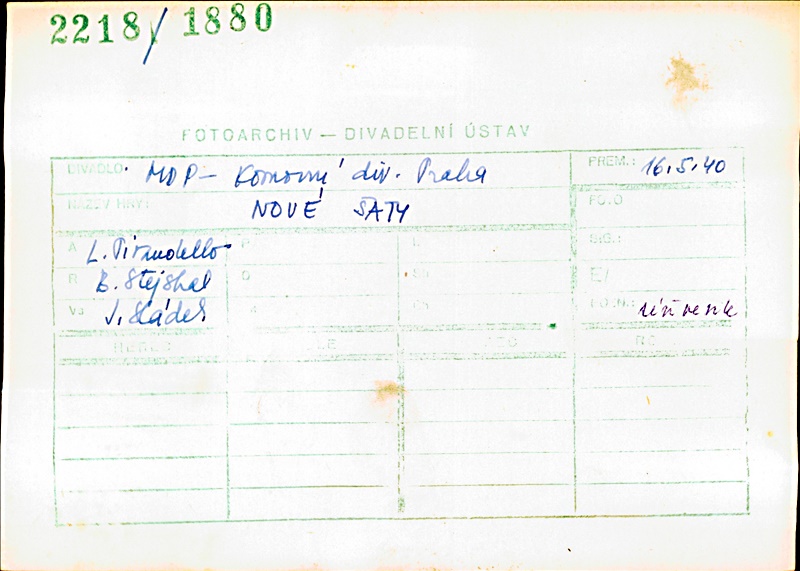 2218/1880
FOTOARCHIV — DIVADELNÍ ÚSTAV
DIVADLO: MDP – Komorní div. Praha
PREM.: 16.5.40
NÁZEV HRY: NOVÉ ŠATY
FOTO
A L. Pirandello P
SIG.:
R B. Stejskal D
E/
V J. Sládek
POZN.: